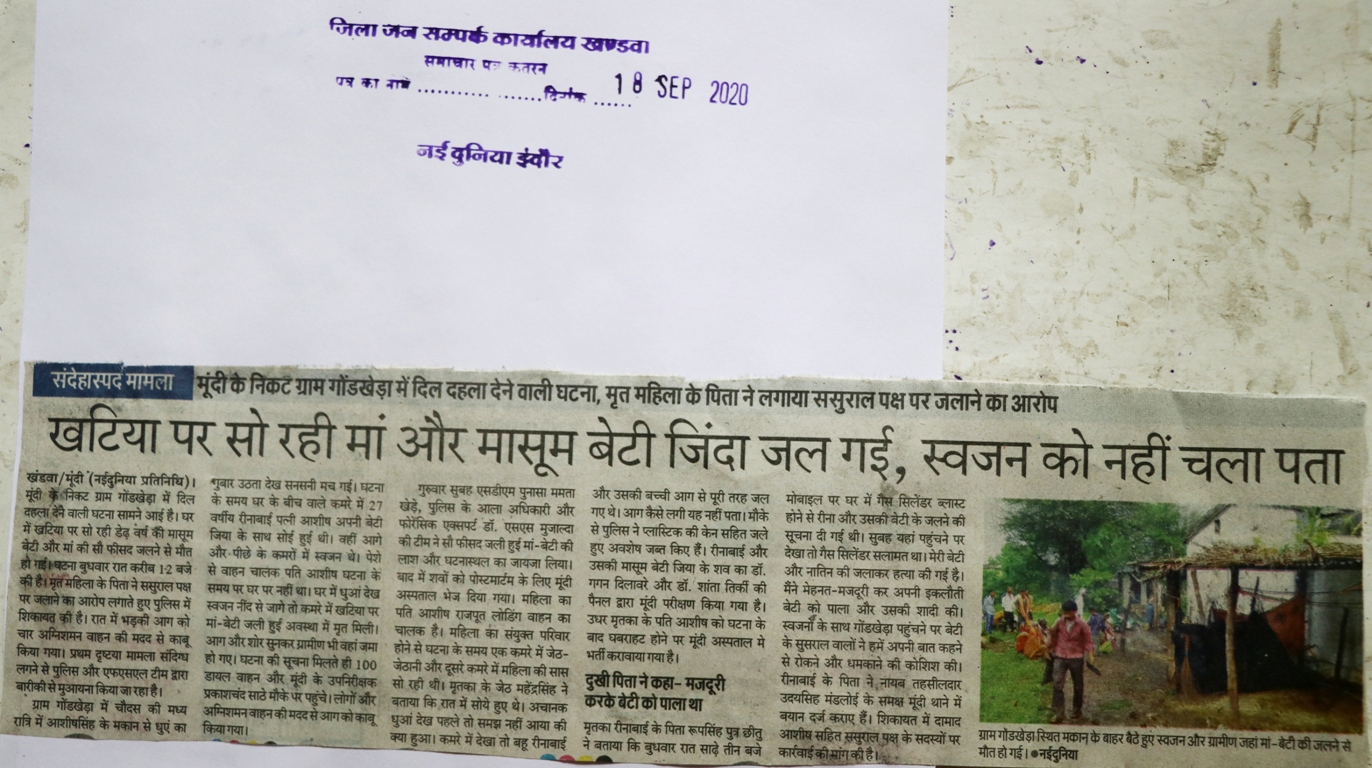 जिला जन सम्पर्क कार्यालय खण्डवा
समाचार पत्र कतरन
पत्र का नाम ........... .......दिनांक ...... 18 SEP 2020
नई दुनिया इंदौर
संदेहास्पद मामला
मूंदी के निकट ग्राम गोंडखेड़ा में दिल दहला देने वाली घटना, मृत महिला के पिता ने लगाया ससुराल पक्ष पर जलाने का आरोप
खटिया पर सो रही मां और मासूम बेटी जिंदा जल गई, स्वजन को नहीं चला पता
खंडवा/मूंदी (नईदुनिया प्रतिनिधि)।
मूंदी के निकट ग्राम गोंडखेड़ा में दिल
दहला देने वाली घटना सामने आई है। घर
में खटिया पर सो रही डेढ़ वर्ष की मासूम
बेटी और मां की सौ फीसद जलने से मौत
हो गई। घटना बुधवार रात करीब 12 बजे
की है। मृत महिला के पिता ने ससुराल पक्ष
पर जलाने का आरोप लगाते हुए पुलिस में
शिकायत की है। रात में भड़की आग को
चार अग्निशमन वाहन की मदद से काबू
किया गया। प्रथम दृष्टया मामला संदिग्ध
लगने से पुलिस और एफएसएल टीम द्वारा
बारीकी से मुआयना किया जा रहा है।
ग्राम गोंडखेड़ा में चौदस की मध्य
रात्रि में आशीषसिंह के मकान से धुएं का
गुबार उठता देख सनसनी मच गई। घटना
के समय घर के बीच वाले कमरे में 27
वर्षीय रीनाबाई पत्नी आशीष अपनी बेटी
जिया के साथ सोई हुई थी। वहीं आगे
और-पीछे के कमरों में स्वजन थे। पेशे
से वाहन चालक पति आशीष घटना के
समय पर घर पर नहीं था। घर में धुआं देख
स्वजन नींद से जागे तो कमरे में खटिया पर
मां-बेटी जली हुई अवस्था में मृत मिली।
आग और शोर सुनकर ग्रामीण भी वहां जमा
हो गए। घटना की सूचना मिलते ही 100
डायल वाहन और मूंदी के उपनिरीक्षक
प्रकाशचंद साठे मौके पर पहुंचे। लोगों और
अग्निशमन वाहन की मदद से आग को काबू
किया गया।
गुरुवार सुबह एसडीएम पुनासा ममता
खेड़े, पुलिस के आला अधिकारी और
फोरेंसिक एक्सपर्ट डॉ. एसएस मुजाल्दा
की टीम ने सौ फीसद जली हुई मां-बेटी की
लाश और घटनास्थल का जायजा लिया।
बाद में शवों को पोस्टमार्टम के लिए मूंदी
अस्पताल भेज दिया गया। महिला का
पति आशीष राजपूत लोडिंग वाहन का
चालक है। महिला का संयुक्त परिवार
होने से घटना के समय एक कमरे में जेठ-
जेठानी और दूसरे कमरे में महिला की सास
सो रही थी। मृतका के जेठ महेंद्रसिंह ने
बताया कि रात में सोये हुए थे। अचानक
धुआं देख पहले तो समझ नहीं आया की
क्या हुआ। कमरे में देखा तो बहू रीनाबाई
और उसकी बच्ची आग से पूरी तरह जल
गए थे। आग कैसे लगी यह नहीं पता। मौके
से पुलिस ने प्लास्टिक की केन सहित जले
हुए अवशेष जब्त किए हैं। रीनाबाई और
उसकी मासूम बेटी जिया के शव का डॉ.
गगन दिलावरे और डॉ. शांता तिर्की की
पैनल द्वारा मूंदी परीक्षण किया गया है।
उधर मृतका के पति आशीष को घटना के
बाद घबराहट होने पर मूंदी अस्पताल मे
भर्ती करावाया गया है।
दुखी पिता ने कहा- मजदूरी
करके बेटी को पाला था
मृतका रीनाबाई के पिता रूपसिंह पुत्र छीतु
ने बताया कि बुधवार रात साढ़े तीन बजे
मोबाइल पर घर में गैस सिलेंडर ब्लास्ट
होने से रीना और उसकी बेटी के जलने की
सूचना दी गई थी। सुबह यहां पहुंचने पर
देखा तो गैस सिलेंडर सलामत था। मेरी बेटी
और नातिन की जलाकर हत्या की गई है।
मैंने मेहनत-मजदूरी कर अपनी इकलौती
बेटी को पाला और उसकी शादी की।
स्वजनों के साथ गोंडखेड़ा पहुंचने पर बेटी
के सुसराल वालों ने हमें अपनी बात कहने
से रोकने और धमकाने की कोशिश की।
रीनाबाई के पिता ने नायब तहसीलदार
उदयसिंह मंडलोई के समक्ष मूंदी थाने में
बयान दर्ज कराए हैं। शिकायत में दामाद
आशीष सहित ससुराल पक्ष के सदस्यों पर
कार्रवाई की मांग की है।
ग्राम गोंडखेड़ा स्थित मकान के बाहर बैठे हुए स्वजन और ग्रामीण जहां मां-बेटी की जलने से
मौत हो गई। ● नईदुनिया